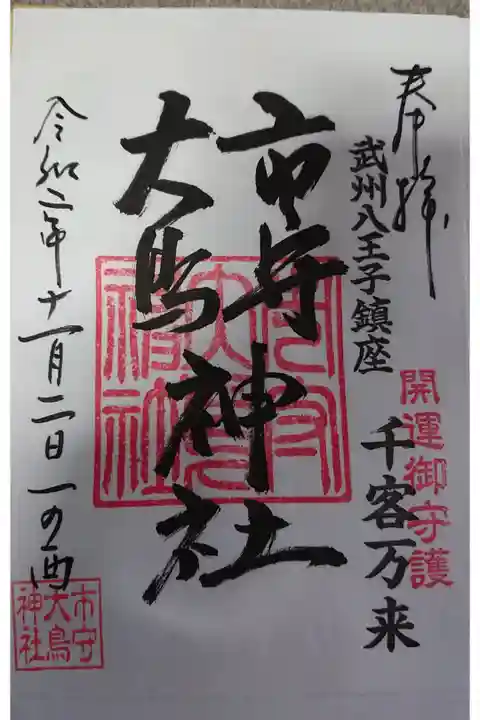 奉拝
武州八王子鎮座
千客万来
開運御守護
市守神社
大鳥神社
令和二年十一月二日一の酉
市守
大鳥
神社